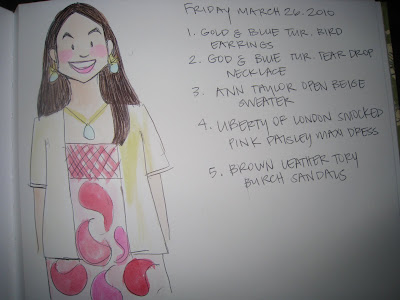 FRIDAY MARCH 26. 2010
1. GOLD & BLUE TUR. BIRD
EARRINGS
2. GOD & BLUE TUR. TEAR DROP
NECKLACE
3. ANN TAYLOR OPEN BEIGE
SWEATER
4. LIBERTY OF LONDON SMOCKED
PINK PAISLEY MAXI DRESS
5. BROWN LEATHER TORY
BURCH SANDALS